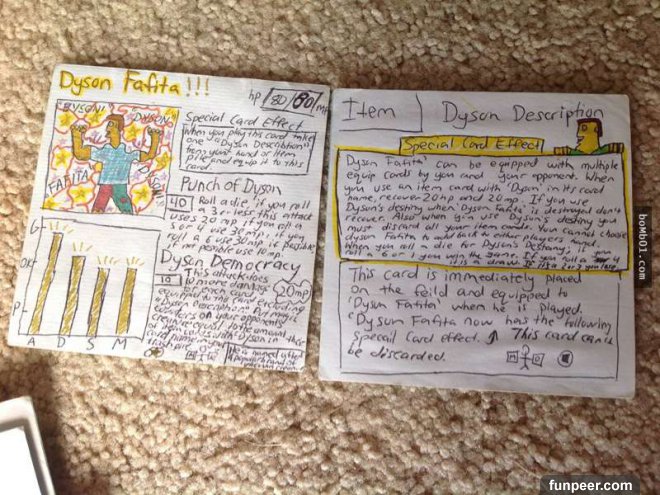 Dyson Fafita!!!
hp 80/80 mp
DYSON! DYSON!
FAFITA
Special Card Effect
When you play this card take
one "Dyson Description"
from your hand or Item
pile and equip it to this
card.
Punch of Dyson
40 Roll a die, if you roll
a 3 or less this attack
uses 20 mp if you roll a
5 or 4 use 30 mp if you
roll 6 use 50 mp if possible,
if not possible use 10 mp.
Dyson Democracy
10 This attack does
10 more damage
for each card
equipped to this card excluding
20mp
G
OK
P
A D S M
Item
Dyson Description
Special Card Effect
Dyson Fafita can be equipped with multiple
equip cards by you and your opponent. When
you use an item card with 'Dyson' in its card
name, recover 20 hp and 20 mp. If you use
Dyson's destiny when Dyson Fafita is destroyed don't
recover. Also when you use Dyson's destiny you
must discard all your item cards. You cannot choose
Dyson Fafita to go back to either players hand.
When you roll a die for Dyson's Destiny, if you
roll a 6 or 1 you win the game. If you roll a 4
This card is immediately placed
on the feild and equipped to
'Dyson Fafita' when he is played.
'Dyson Fafita now has the following
Special Card effect. This card can't
be discarded.
bomb01.com
funpeer.com